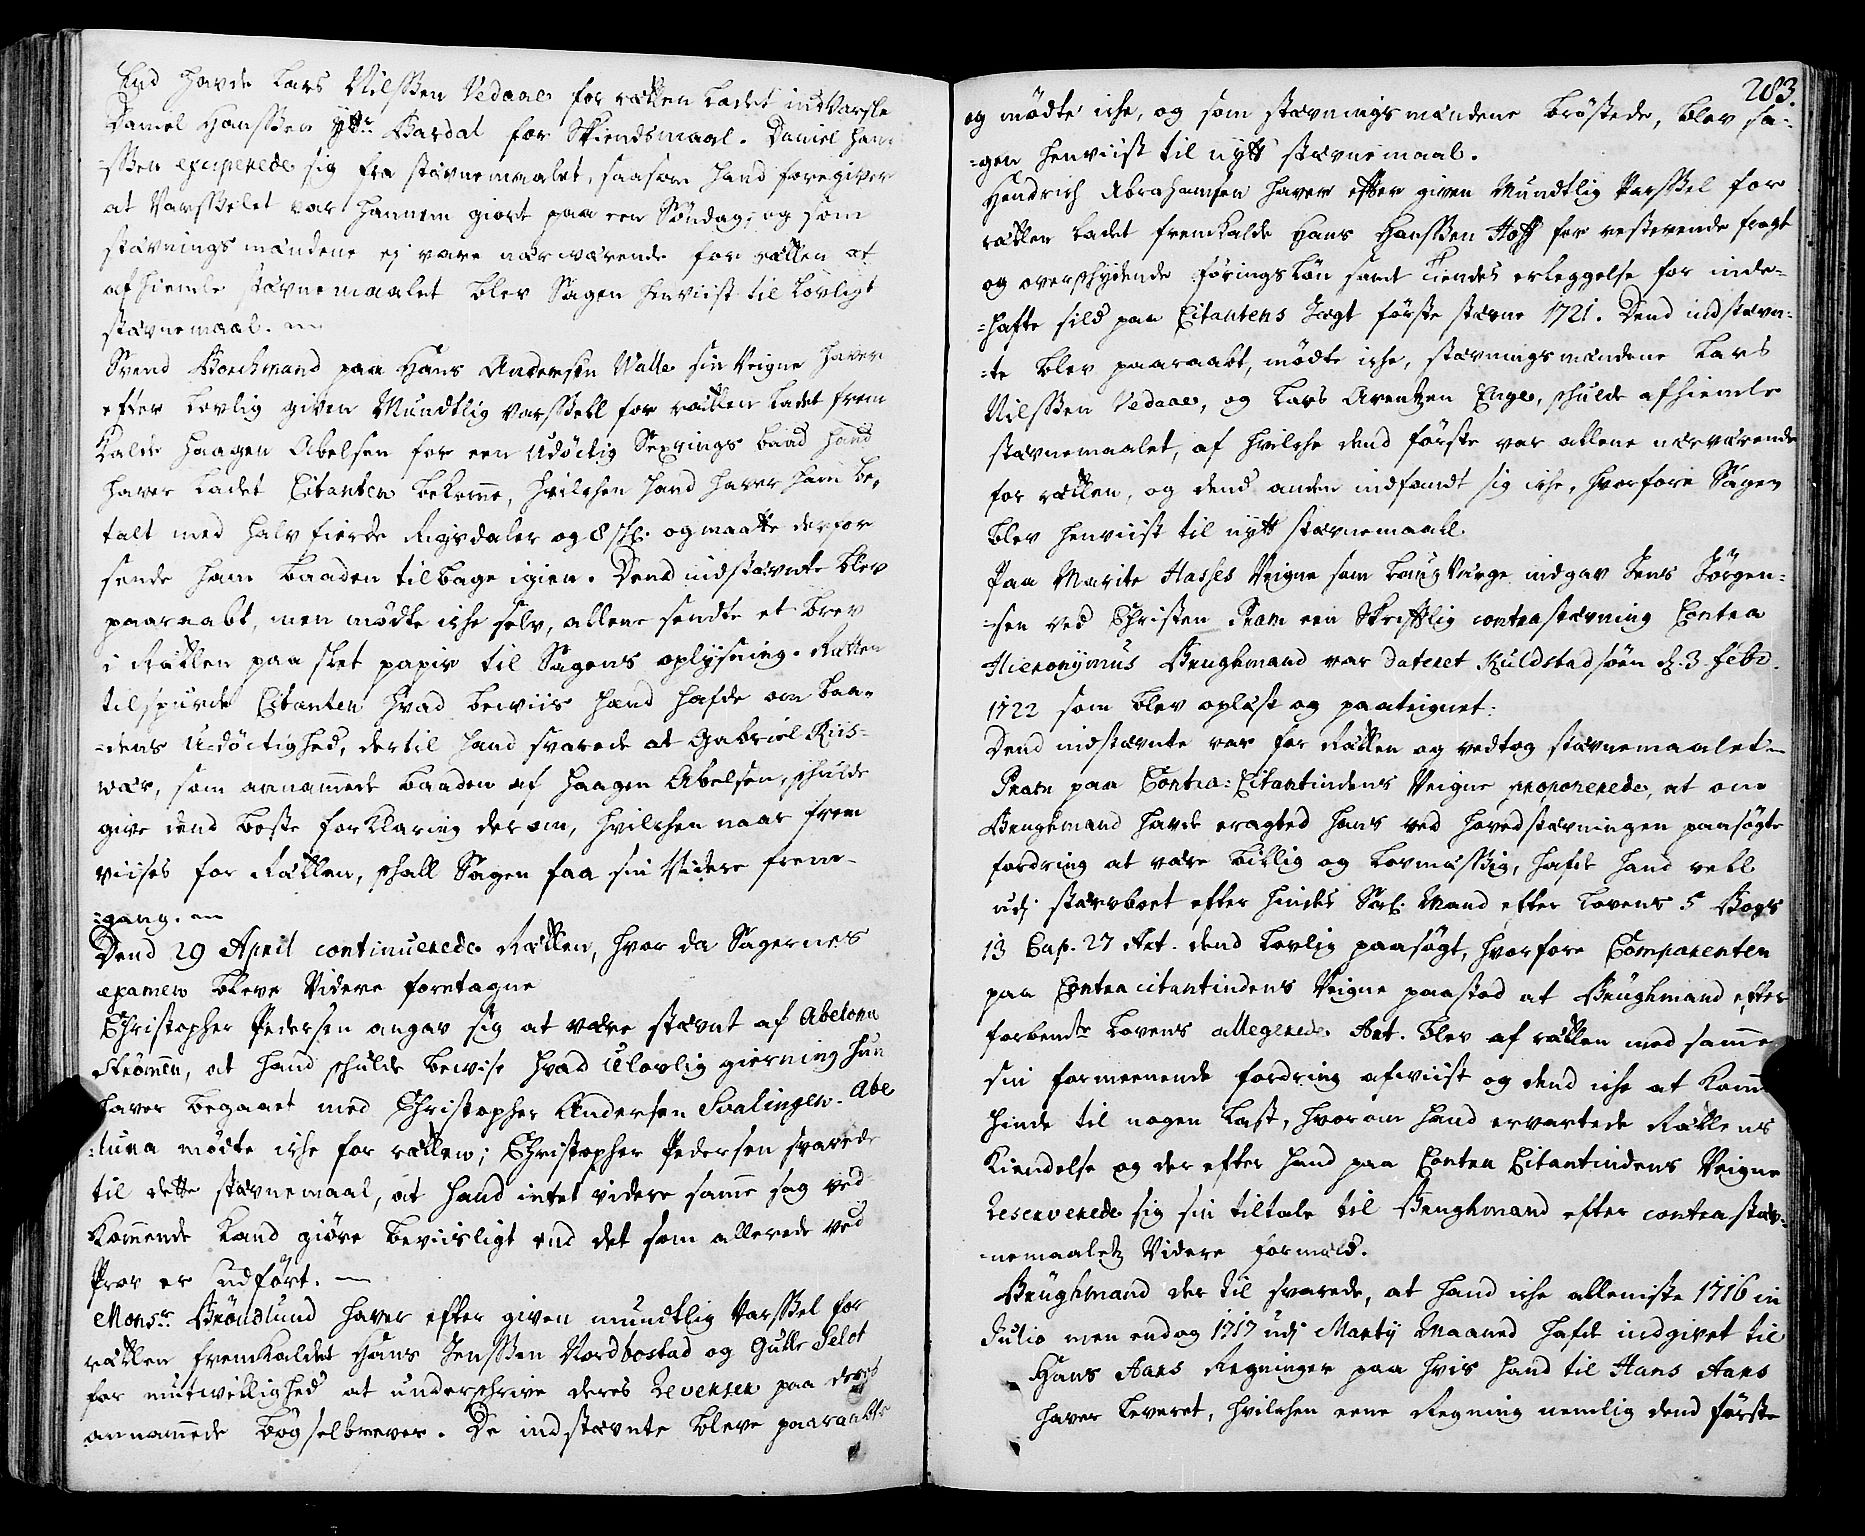 End havde Lars Nilssen Vedaae for rætten ladet ind Varsle
Daniel Hanssen Ytt: Bardal for Skiendsmaal. Daniel Han-
-ssen exciperede sig fra stævnemaalet, saasom hand foregiver
at Varsselet var hannem giort paa een Søndag, og som
stævnings mændene ej vare nærværende for rætten at
afhiemle stævnemaalet blev Sagen henviist til lovligt
stævnemaal.
Svend Bochmand paa Hans Andersen Walle sin Veigne haver
efter lovlig given Mundtlig varssell for rætten ladet frem
Kalde Haagen Abelsen for een udöctig Sexrings baad hand
haver ladet Citanten bekomme, hvilchen hand haver ham be-
talt med halv fierde Rigsdaler og 8 sk: og maatte derfor
sende ham baaden tilbage igien. Dend indstævnte blev
paaraabt, men mödte iche selv, allene sendte et brev
i Rætten paa slet papir til Sagens oplysning. Rætten
tilspurde Citanten hvad beviis hand hafde om baa-
-dens Udöctighed, dertil hand svarede at Gabriel Riis-
vær, som annammede baaden af Haagen Abelsen, schulde
give dend beste forklaring derom, hvilchen naar frem
viises for Rætten, schall Sagen faa sin Videre frem-
-gang.
Dend 29 April continuerede Rætten, hvor da Sagernes
examen bleve Videre foretagne
Christopher Pedersen angav sig at være stævnt af Abelona
Strömen, at hand schulde bevise hvad Ulovlig gierning hun
haver begaaet med Christopher Andersen Svalingen. Abe
-luna mödte iche for rætten; Christopher Pedersen svarede
til dette stævnemaal, at hand intet videre samme sag ved-
Kommende kand giöre beviisligt end det som allerede ved
Prov er udfört.
Monsr. Bröndlund haver efter given mundtlig Varssel for
rætten fremkaldet Hans Jenssen Nordbostad og Gulle Selot
for mutvillighed at underschrive deres Reverser paa deris
annammede bögselbrever. De indstævnte bleve paaraabte
283.
og mödte iche, og som stævningsmændene bröstede, blev sa-
-gen henviist til nytt stævnemaal.
Hendrich Abrahamsen haver efter given Mundtlig Varssel for
rætten ladet fremkalde Hans Hanssen Hoff for resterende fragt
og overschydende föringslön samt Tiendes erleggelse for inde-
-hafte sild paa Citantens Jægt förste stævne 1721. Dend indstævn-
-te blev paaraabt, mödte iche, stævningsmændene Lars
Nilssen Vedaae, og Lars Arentzen Enge, schulde afhiemle
stævnemaalet, af hvilche dend förste var allene nærværende
for rætten, og dend anden indfandt sig iche, hvorfore Sagen
blev henviist til nytt stævnemaall.
Paa Marite Hasses Veigne som Laug Værge indgav Jens Jörgen-
-sen ved Christen Pram een Skriftlig contrastævning Contra
Hieronymus Brughmand var dateret Kuldstadsöen d. 3 febr.
1722 som blev oplæst og paateignet.
Dend indstævnte var for Rætten og vedtog stævnemaalet
Pram paa Contra-Citantindens Veigne proponerede, at om
Brughmand havde eragted hans ved hovedstævningen paasögte
fordring at være billig og lovmæssig, hafde hand vell
udj stærvboet efter hindes Sal: Mand efter Lovens 5 Bogs
13 Cap. 27 Art. dend lovlig paasögt, hvorfore Comparenten
paa Contracitantindens Veigne paastod at Brughmand efter
forbemte Lovens allegerede Art. blev af rætten med samme
sin formeenende fordring afviist og dend iche at komme
hinde til nogen last, hvorom hand ervartede Rættens
Kiendelse og der efter hand paa Contra Citantindens Veigne
Reserverede sig sin tiltale til Brughmand efter contrastæv-
-nemaaletz Videre formæld.
Brughmand der til svarede, at hand iche alleniste 1716 in
Julio men endog 1717 udj Marty Maaned hafde indgivet til
Hans Aars Regninger paa hvis hand til Hans Aars
haver leveret, hvilchen eene Regning nemlig dend förste